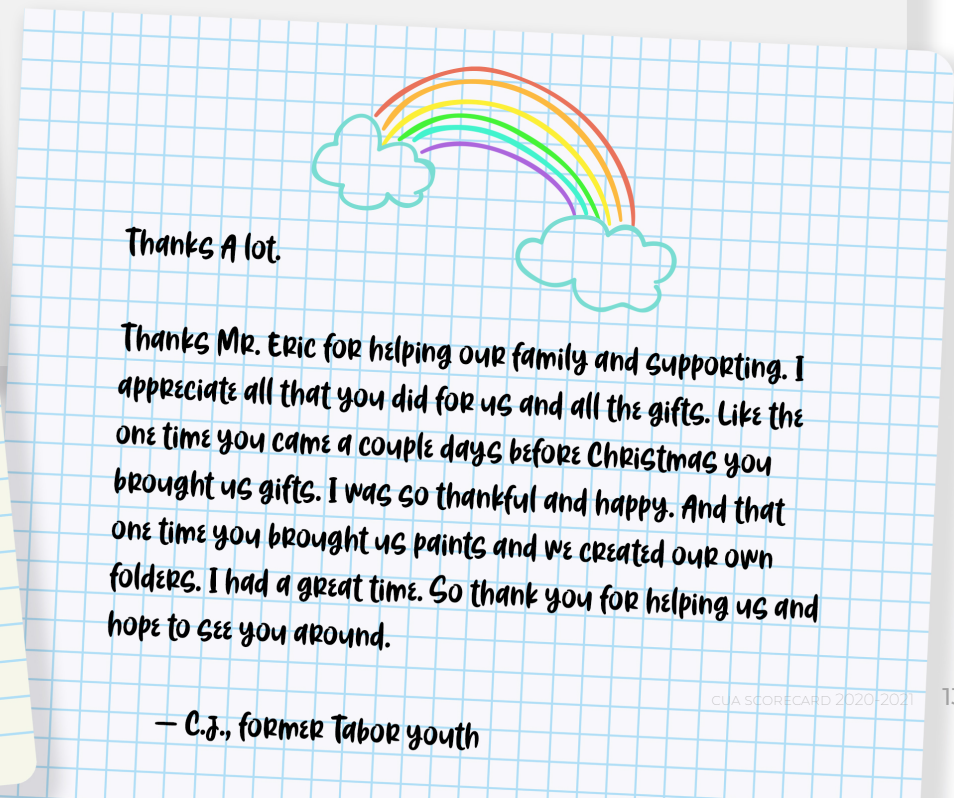 Thanks A lot.
Thanks Mr. Eric for helping our family and supporting. I
appreciate all that you did for us and all the gifts. Like the
one time you came a couple days before Christmas you
brought us gifts. I was so thankful and happy. And that
one time you brought us paints and we created our own
folders. I had a great time. So thank you for helping us and
hope to see you around.
CUA SCORECARD 2020-2021
— C.J., former Tabor youth